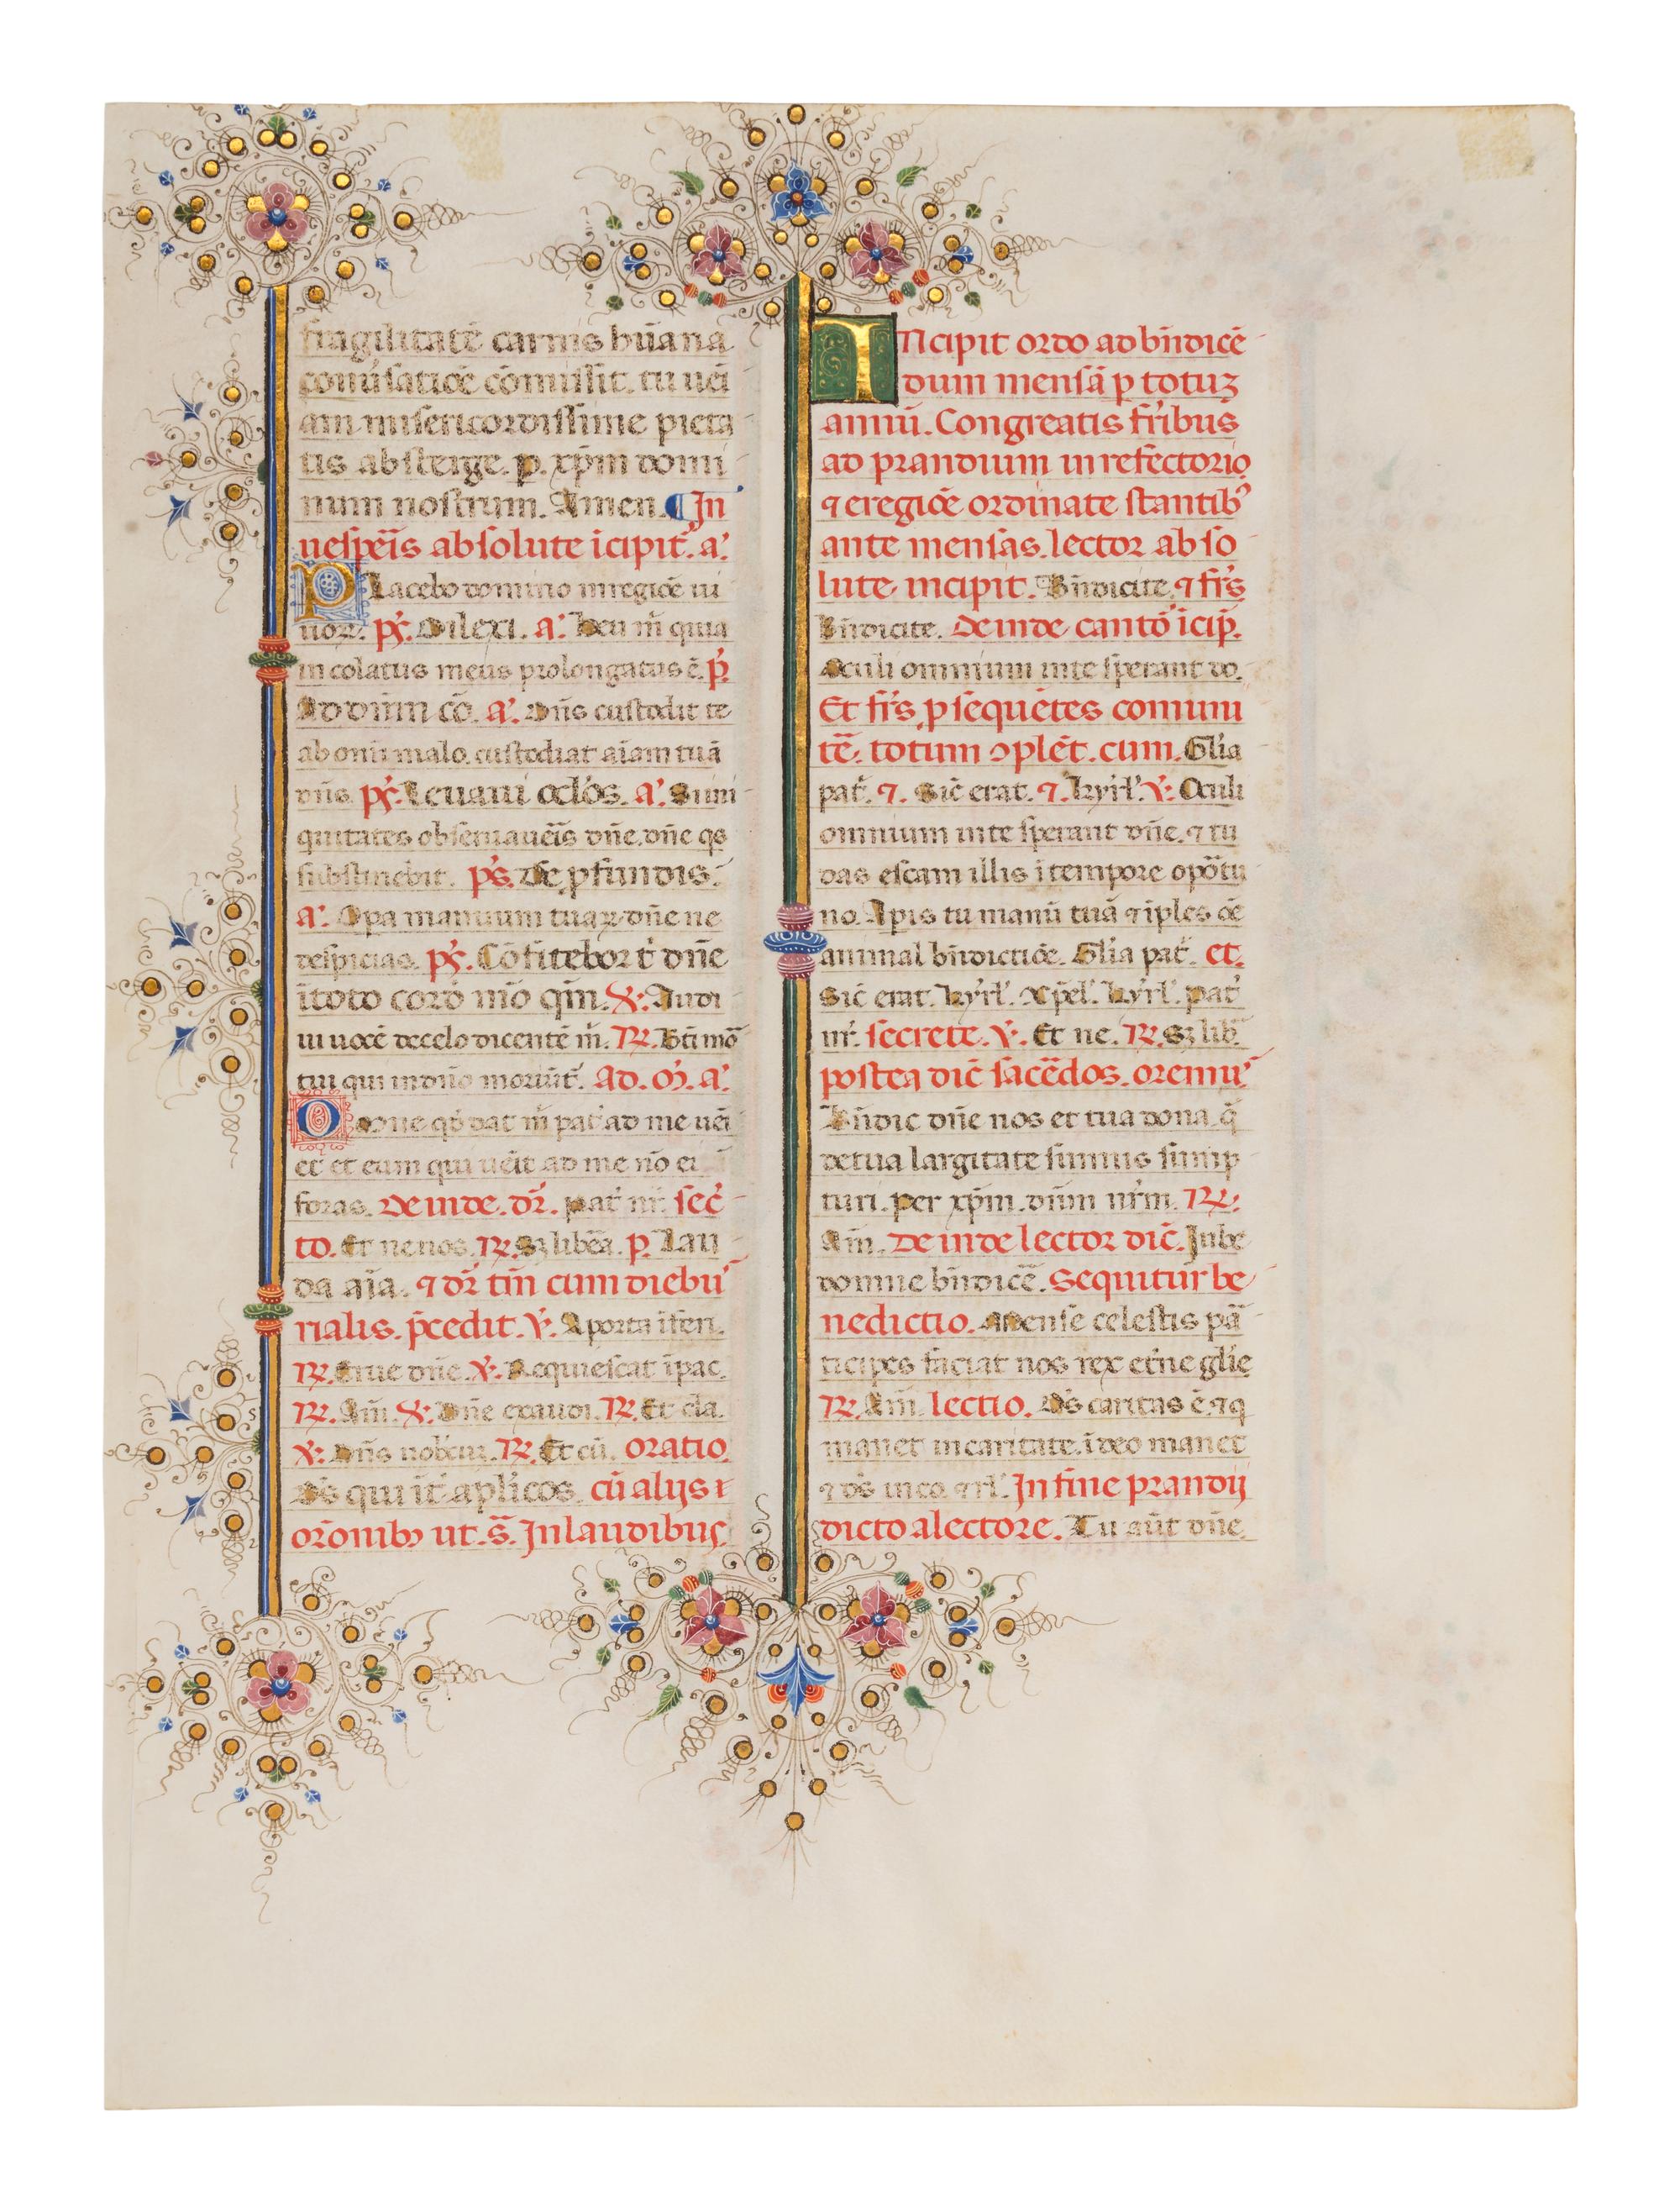 fragilitatē carnis hūana
cōuīsatiōe cōmisit. tu uēi
am misericordissime pieta
tis absterge. p. xp̄m domi
num nostrum. Amen. ¶ In
uesp̄eīs absolute īcipit. a᷎.
Placebo domino inregiōe ui
uoꝝ. pš. Dilexi. a᷎. Heu m̄ quia
in colatus meus prolongatus ē. p̄s.
Ad dn̄m cō. a᷎. Dn̄s custodit te
ab omī malo. custodiat aīam tuā
dn̄s. pš. Leuaui oclōs. a᷎. Siini
quitates obseruaueīs dn̄e. dn̄e qs
substinebit. pš. De p̱fundis.
a᷎. Opa manuum tuaꝝ dn̄e ne
despicias. pš. Cōfitebor t' dn̄e
ītoto cord̄ mō qm̄. ℣. Audi
ui uocē decelo dicentē m̄. ℟. Bt̄i mō
tui qui indn̄o moriūt'. Ad. m̄. a᷎.
Omne qd̄ dat m̄ pat' ad me uēi
et et eum qui uēit ad me nō ei
foras. Deinde. dr̄. pat' nr̄. sec̄
to. Et nenos. ℟. Sꝫ libēa. p. Lau
da aīa. ⁊ dr̄ tm̄ cum diebu
rialis. p̄cedit. ℣. Aporta īferi.
℟. Erue dn̄e. ℣. Requiescat īpac.
℟. Am̄. ℣. Dn̄e exaudi. ℟. Et cla.
℣. Dn̄s nobcuꝫ. ℟. Et cū. oratio
Ds̄ qui īt' aplicos. cū alijs
orōnibꝫ ut. s̄. Inlaudibus
INcipit ordo ad bn̄dicē
dum mensā p totuꝫ
annū. Congreatis fr̄ibus
ad prandium in refectorio
⁊ eregiōe ordinate stantibꝰ
ante mensas. lector abso
lute incipit. Bn̄dicite. ⁊ fr̄s
Bn̄dicite. Deinde cantō īcip̄.
Oculi omnium inte sperant do.
Et fr̄s p̱sequētes comuni
tē. totum ꝯplēt. cum. Glīa
pat'. ⁊. Sic̄ erat. ⁊. kyrł. ℣. Oculi
omnium inte sperant dn̄e. ⁊ tu
das escam illis ī tempore opōtu
no. Apis tu manū tuā ⁊ īples oē
animal bn̄dictiōe. Glīa pat'. et.
Sic̄ erat. kyrł. Xp̄eł. kyrł. pat'
nr̄. secrete. ℣. Et ne. ℟. Sꝫ lib̄.
postea dic̄ sacēdos. oremuꝰ
Bn̄dic dn̄e nos et tua dona q̄
detua largitate sumus sump
turi. per xp̄m. dn̄m nr̄m. ℟.
Am̄. Deinde lector dic̄. Iube
domne bn̄dicē̄. Sequitur be
nedictio. Mense celestis pā
ticipes faciat nos rex et̄ne glīe
℟. Am̄. lectio. Ds̄ caritas ē. ⁊ q
manet incaritate. īdeo manet
⁊ ds̄ ineo. ⁊ rł. In fine prandij
dicto a lectore. Tu aūt dn̄e.